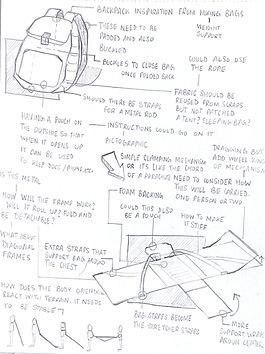 BACKPACK INSPIRATION FROM HIKING BAGS
↓
WEIGHT
SUPPORT
THESE NEED TO BE
PADDED AND ALSO
BUCKLED
BUCKLES TO CLOSE BAG
ONCE FOLDED BACK
COULD ALSO USE
THE ROPE
FABRIC SHOULD BE
REUSED FROM SCRAPS
BUT NOT PATCHED
A TENT? SLEEPING BAG?
SHOULD THERE BE STRAPS
FOR A METAL ROD
HAVING A POUCH ON
THE OUTSIDE SO THAT
WHEN IT OPENS UP
IT CAN BE USED
TO KEEP
INSTRUCTIONS COULD GO ON IT
PICTOGRAPHIC
SIMPLE CLAMPING MECHANISM
OR ITS LIKE THE CHORD
OF A PARACHUTE
DRAGGING BUT
ADD WHEEL KIND
OF MECHANISM
NEED TO CONSIDER HOW
THIS WILL BE CARRIED.
ONE PERSON OR TWO
IS THIS METAL
HOW WILL THE FRAME WORK?
WILL IT ROLL UP? FOLD AND
BE DETACHABLE?
FOAM BACKING
COULD THIS ALSO
BE A POUCH
HOW TO MAKE
IT STIFF
WHAT ABOUT
DIAGONAL
FRAMES
EXTRA STRAPS THAT
SUPPORT BAG AROUND
THE CHEST
HOW DOES THE BODY
REACT WITH TERRAIN. IT NEEDS
TO BE STABLE
BAG STRAPS BECOME
THE STRETCHER STRAPS
MORE
SUPPORT
CENTER